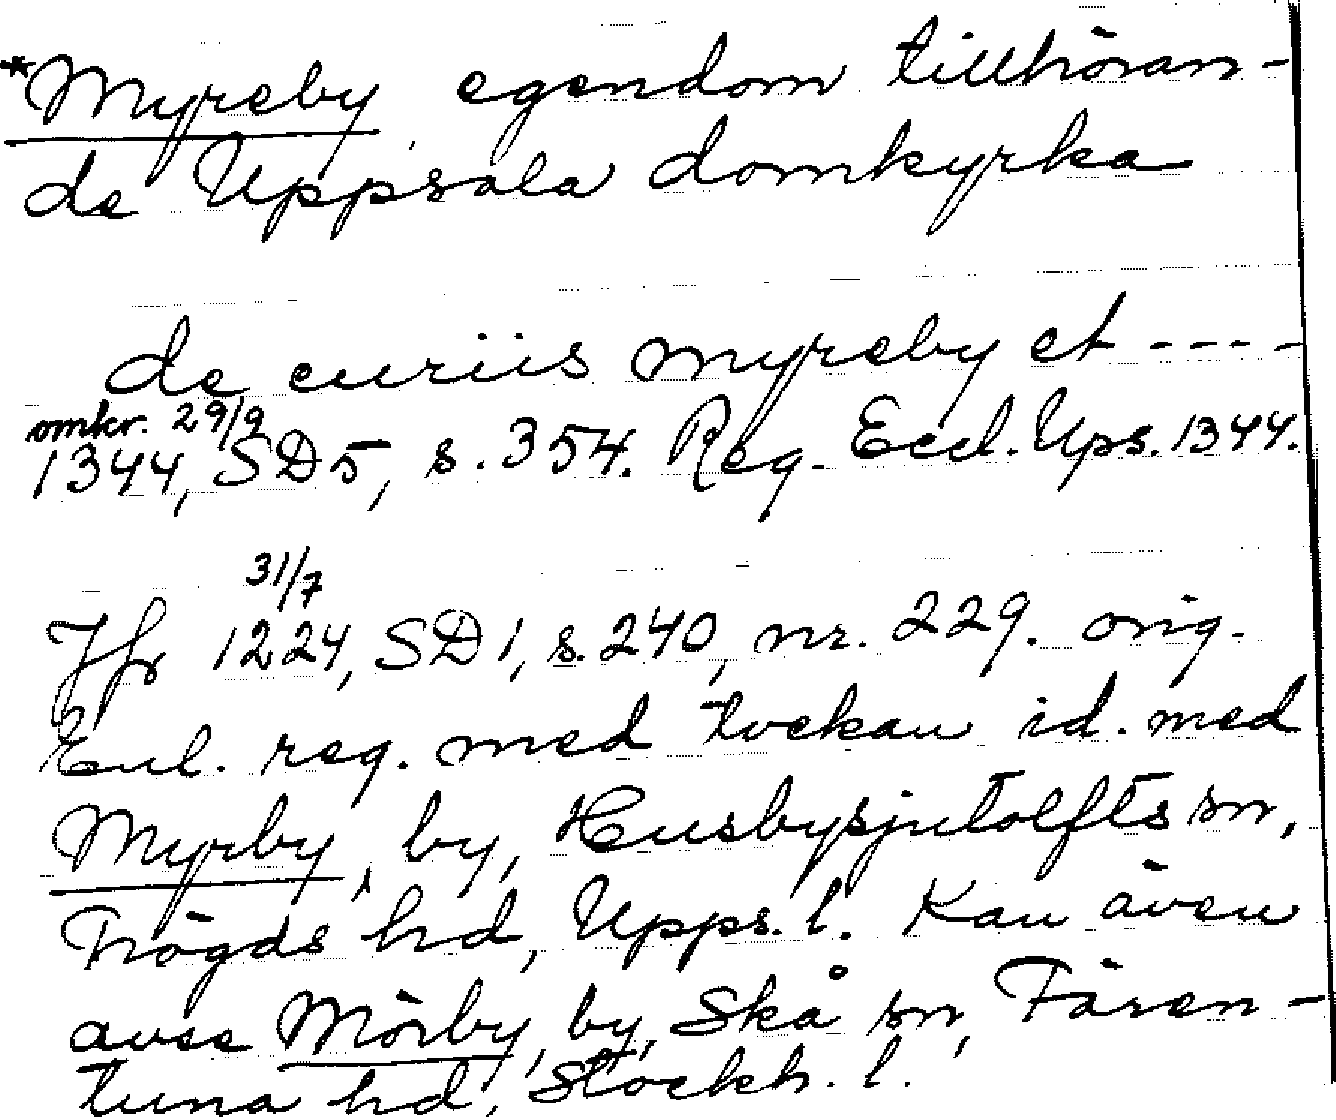 *Myreby egendom tillhöran-
de Uppsala domkyrka
de curiis myreby et ----
omkr. 29/9
1344, SD5, s. 354. Reg. Eccl. Ups. 1344.
31/7
Jfr 1224, SD 1, s. 240, nr. 229. orig.
Enl. reg. med tvekan id. med
Myrby, by, Husbysjutolfts sn,
Trögds hd, Upps. l. Kan även
avse Mörby, by, Skå sn, Fären-
tuna hd, Stockh. l.